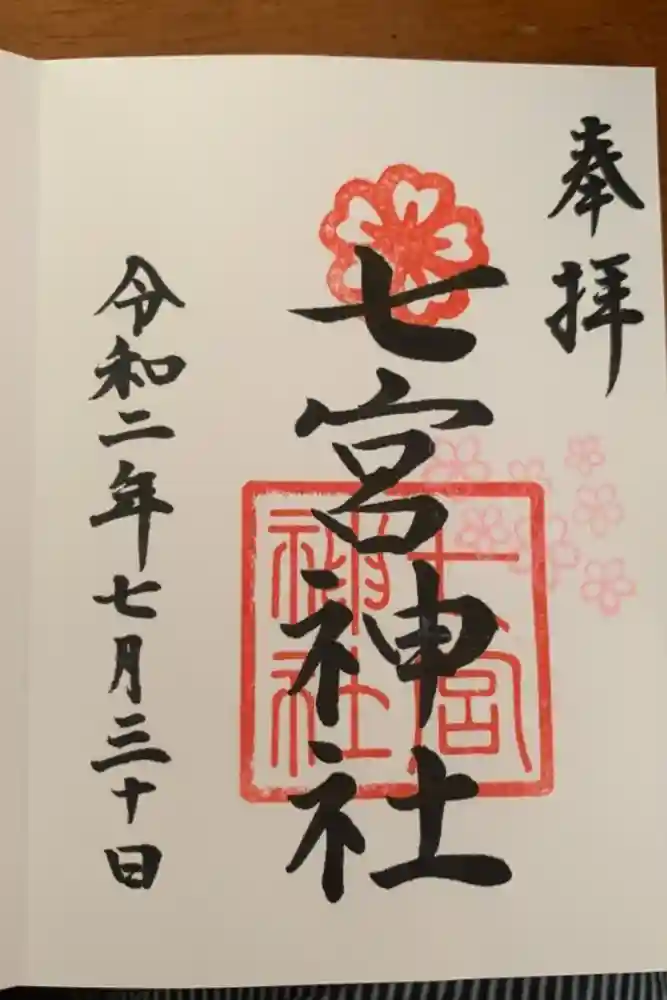 奉拝
七宮神社
七宮神社
令和二年七月三十日